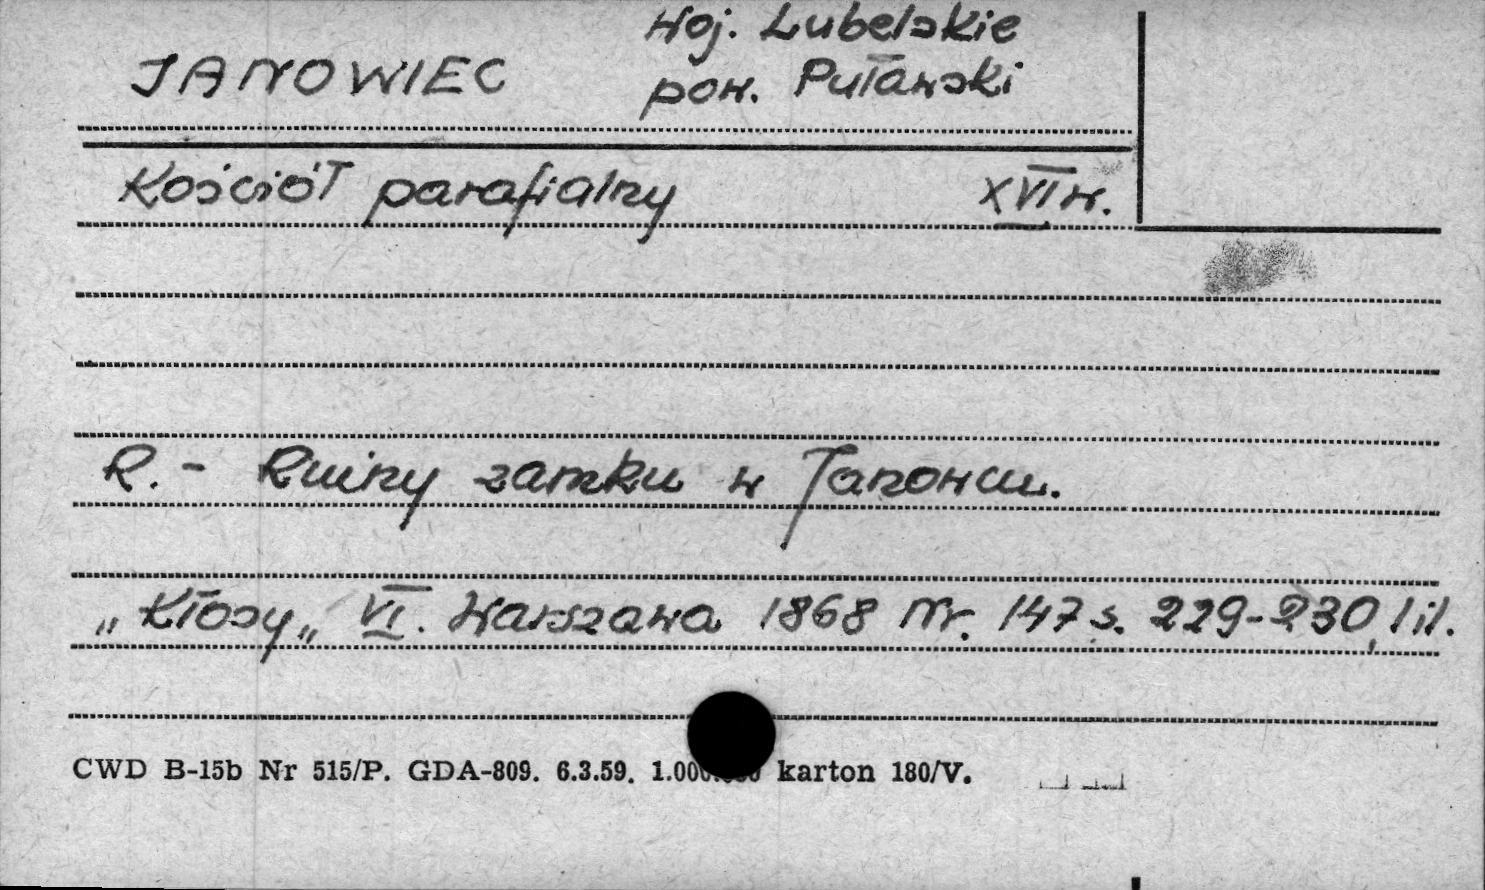 JANOWIEC
Woj. Lubelskie
pow. Puławski
Kościół parafialny XVI w.
R. - Ruiny zamku w Janowcu.
„Kłosy„ VI. Warszawa 1868 Nr. 147 s. 229-230, 1 il.
CWD B-15b Nr 515/P. GDA-809. 6.3.59. 1.000.000 karton 180/V.